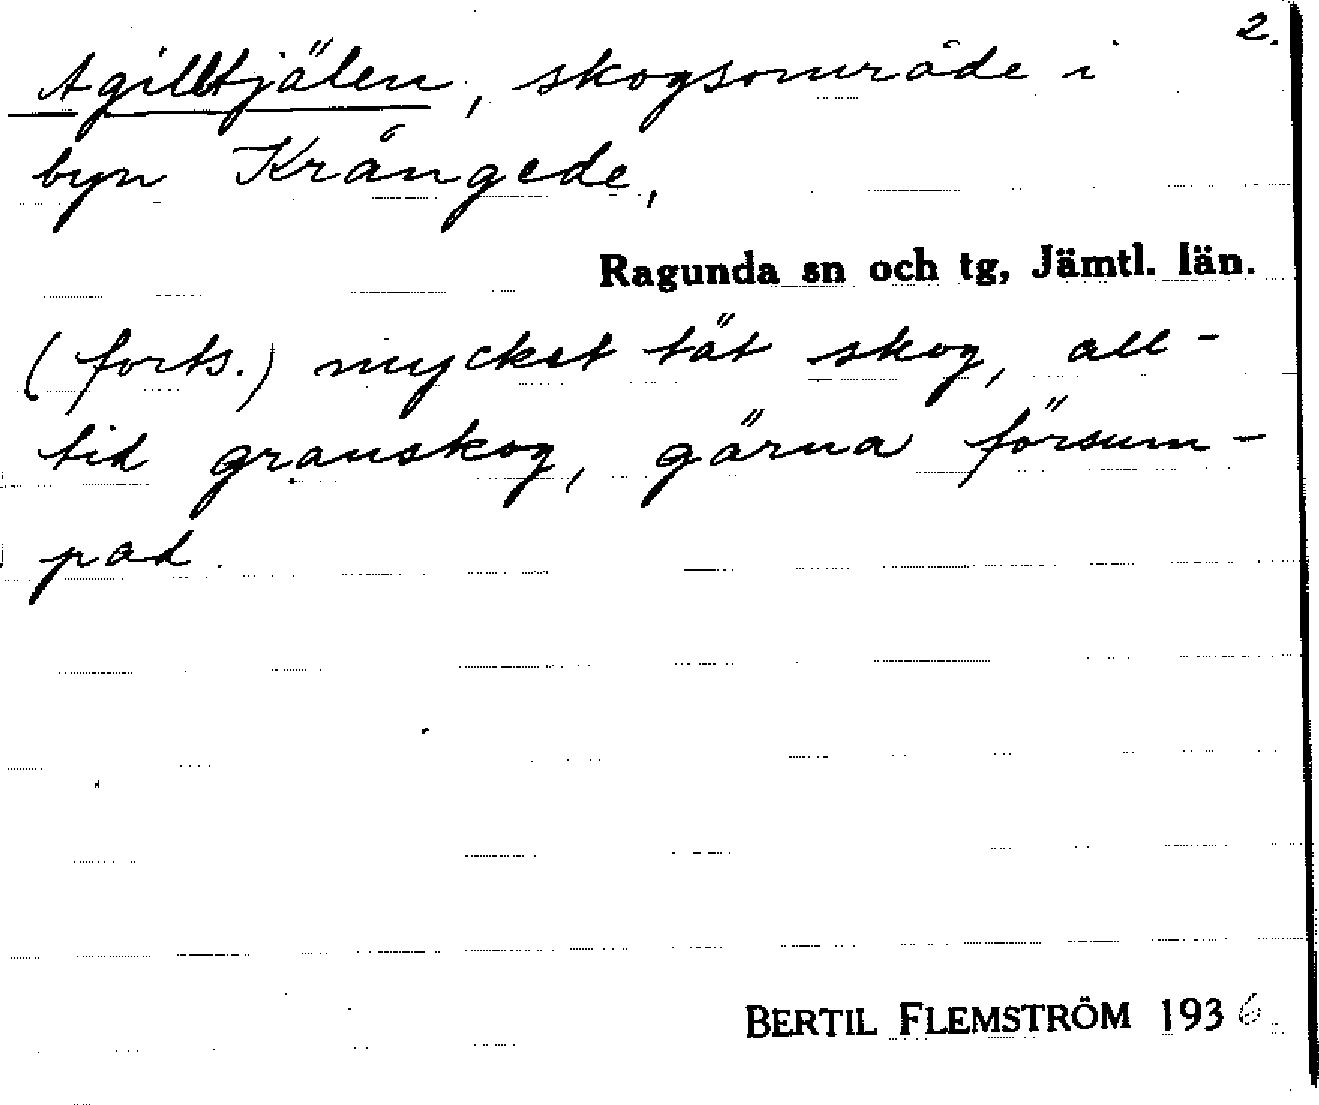 2.
Agilltjälen, skogsområde i
byn Krångede,
Ragunda sn och tg, Jämtl. län.
(forts.) mycket tät skog, all-
tid granskog, gärna försum-
pad.
BERTIL FLEMSTRÖM 1936